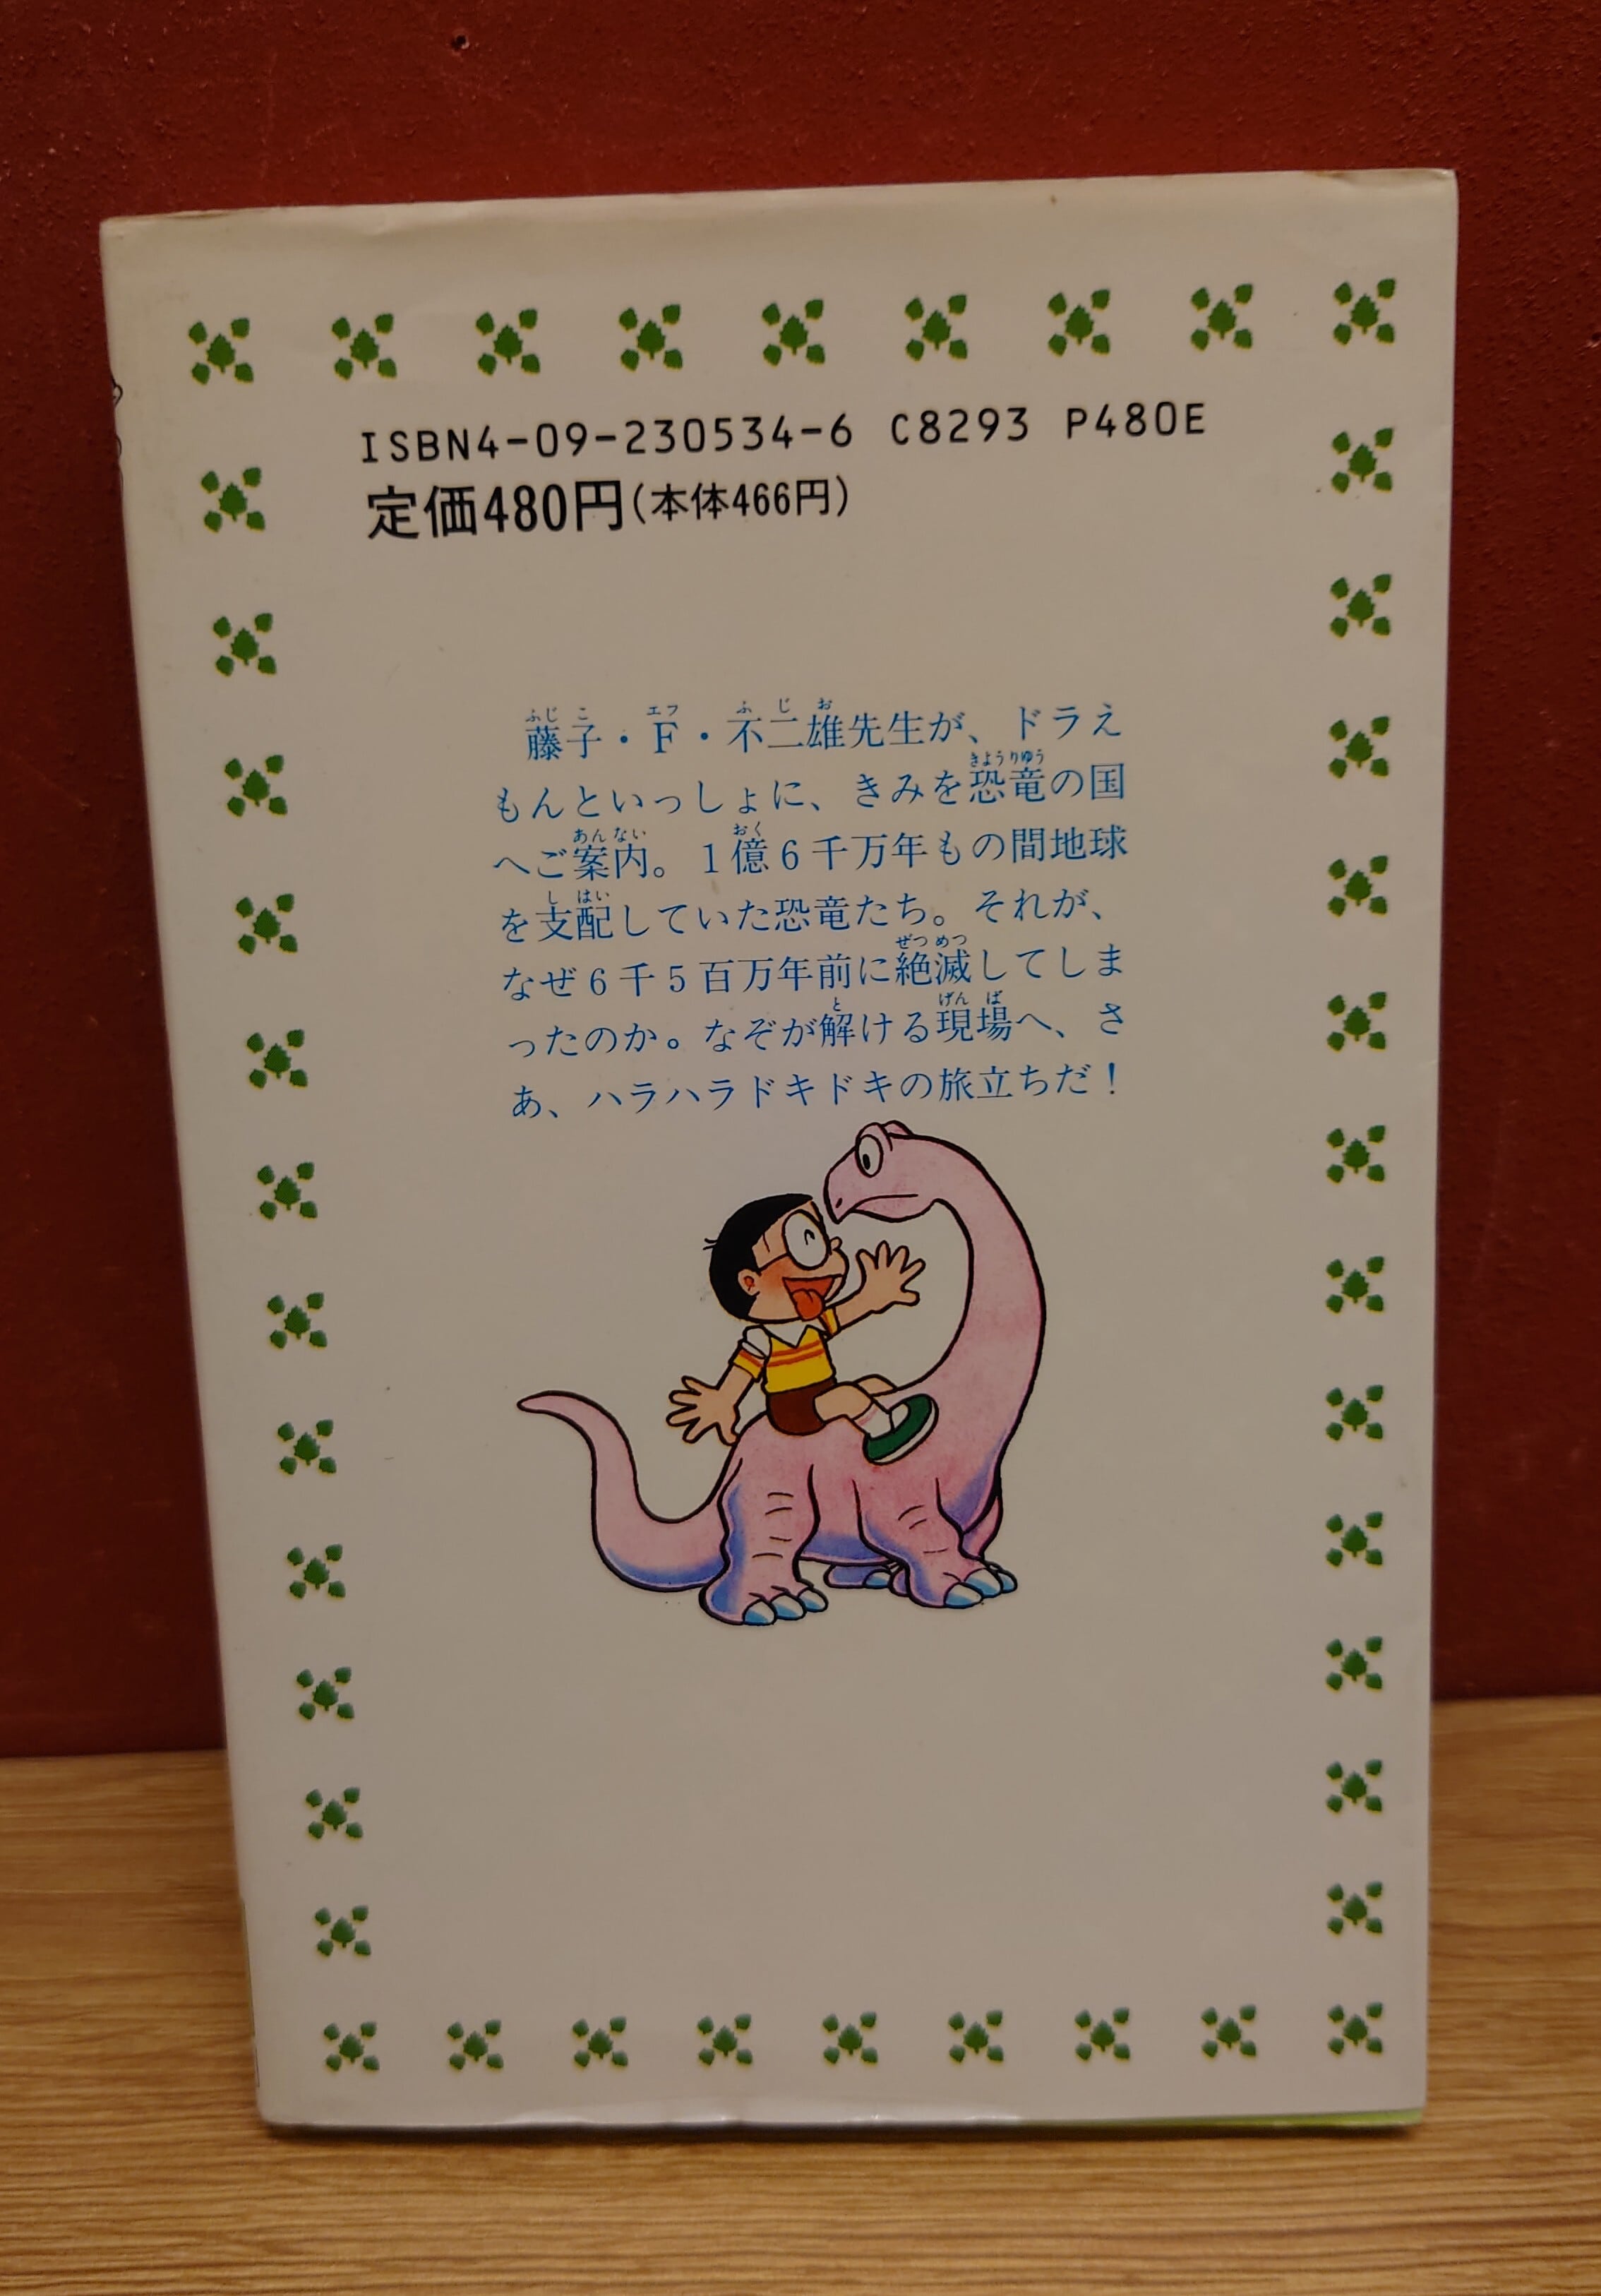 ISBN4-09-230534-6 C8293 P480E
定価480円(本体466円)
藤子・F・不二雄先生が、ドラえ
もんといっしょに、きみを恐竜の国
へご案内。1億6千万年もの間地球
を支配していた恐竜たち。それが、
なぜ6千5百万年前に絶滅してしま
ったのか。なぞが解ける現場へ、さ
あ、ハラハラドキドキの旅立ちだ!